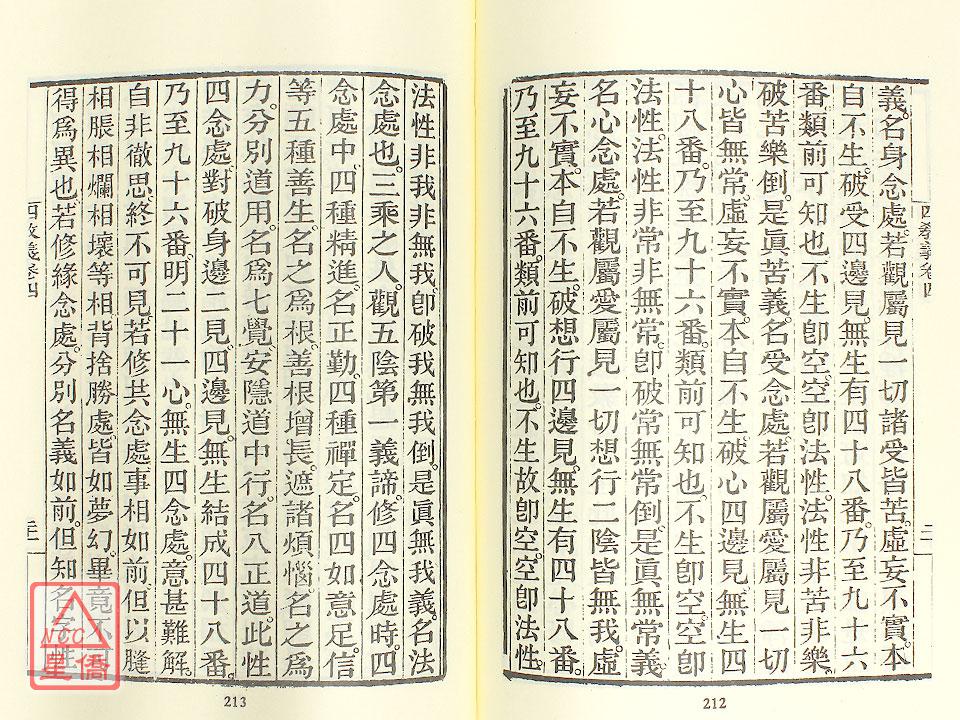 四教義卷四
二一
義。名身念處。若觀屬見一切諸受皆苦。虛妄不實。本
自不生。破受四邊見。無生有四十八番。乃至九十六
番。類前可知也。不生卽空。空卽法性。法性非苦非樂。
破苦樂倒。是眞苦義。名受念處。若觀屬愛屬見一切
心皆無常。虛妄不實。本自不生。破心四邊見。無生四
十八番。乃至九十六番。類前可知也。不生卽空。空卽
法性。法性非常非無常。卽破常無常倒。是眞無常義。
名心念處。若觀屬愛屬見一切想行二陰皆無我。虛
妄不實。本自不生。破想行四邊見。無生有四十八番。
乃至九十六番。類前可知也。不生故卽空。空卽法性。
212
法性非我非無我。卽破我無我倒。是眞無我義。名法
念處也。三乘之人。觀五陰第一義諦。修四念處時。四
念處中。四種精進。名正勤。四種禪定。名四如意足。信
等五種善生。名之爲根。善根增長。遮諸煩惱。名之爲
力。分別道用。名爲七覺。安隱道中行。名八正道。此性
四念處。對破身邊二見。四邊見。無生結成四十八番。
乃至九十六番。明二十一心。無生四念處。意甚難解。
自非徹思。終不可見。若修共念處。事相如前。但以膖
相脹相爛相壞等相背捨勝處。皆如夢幻。畢竟不可
得爲異也。若修緣念處。分別名義如前。但知名字性
四教義卷四
二一
213
NCC
星僑